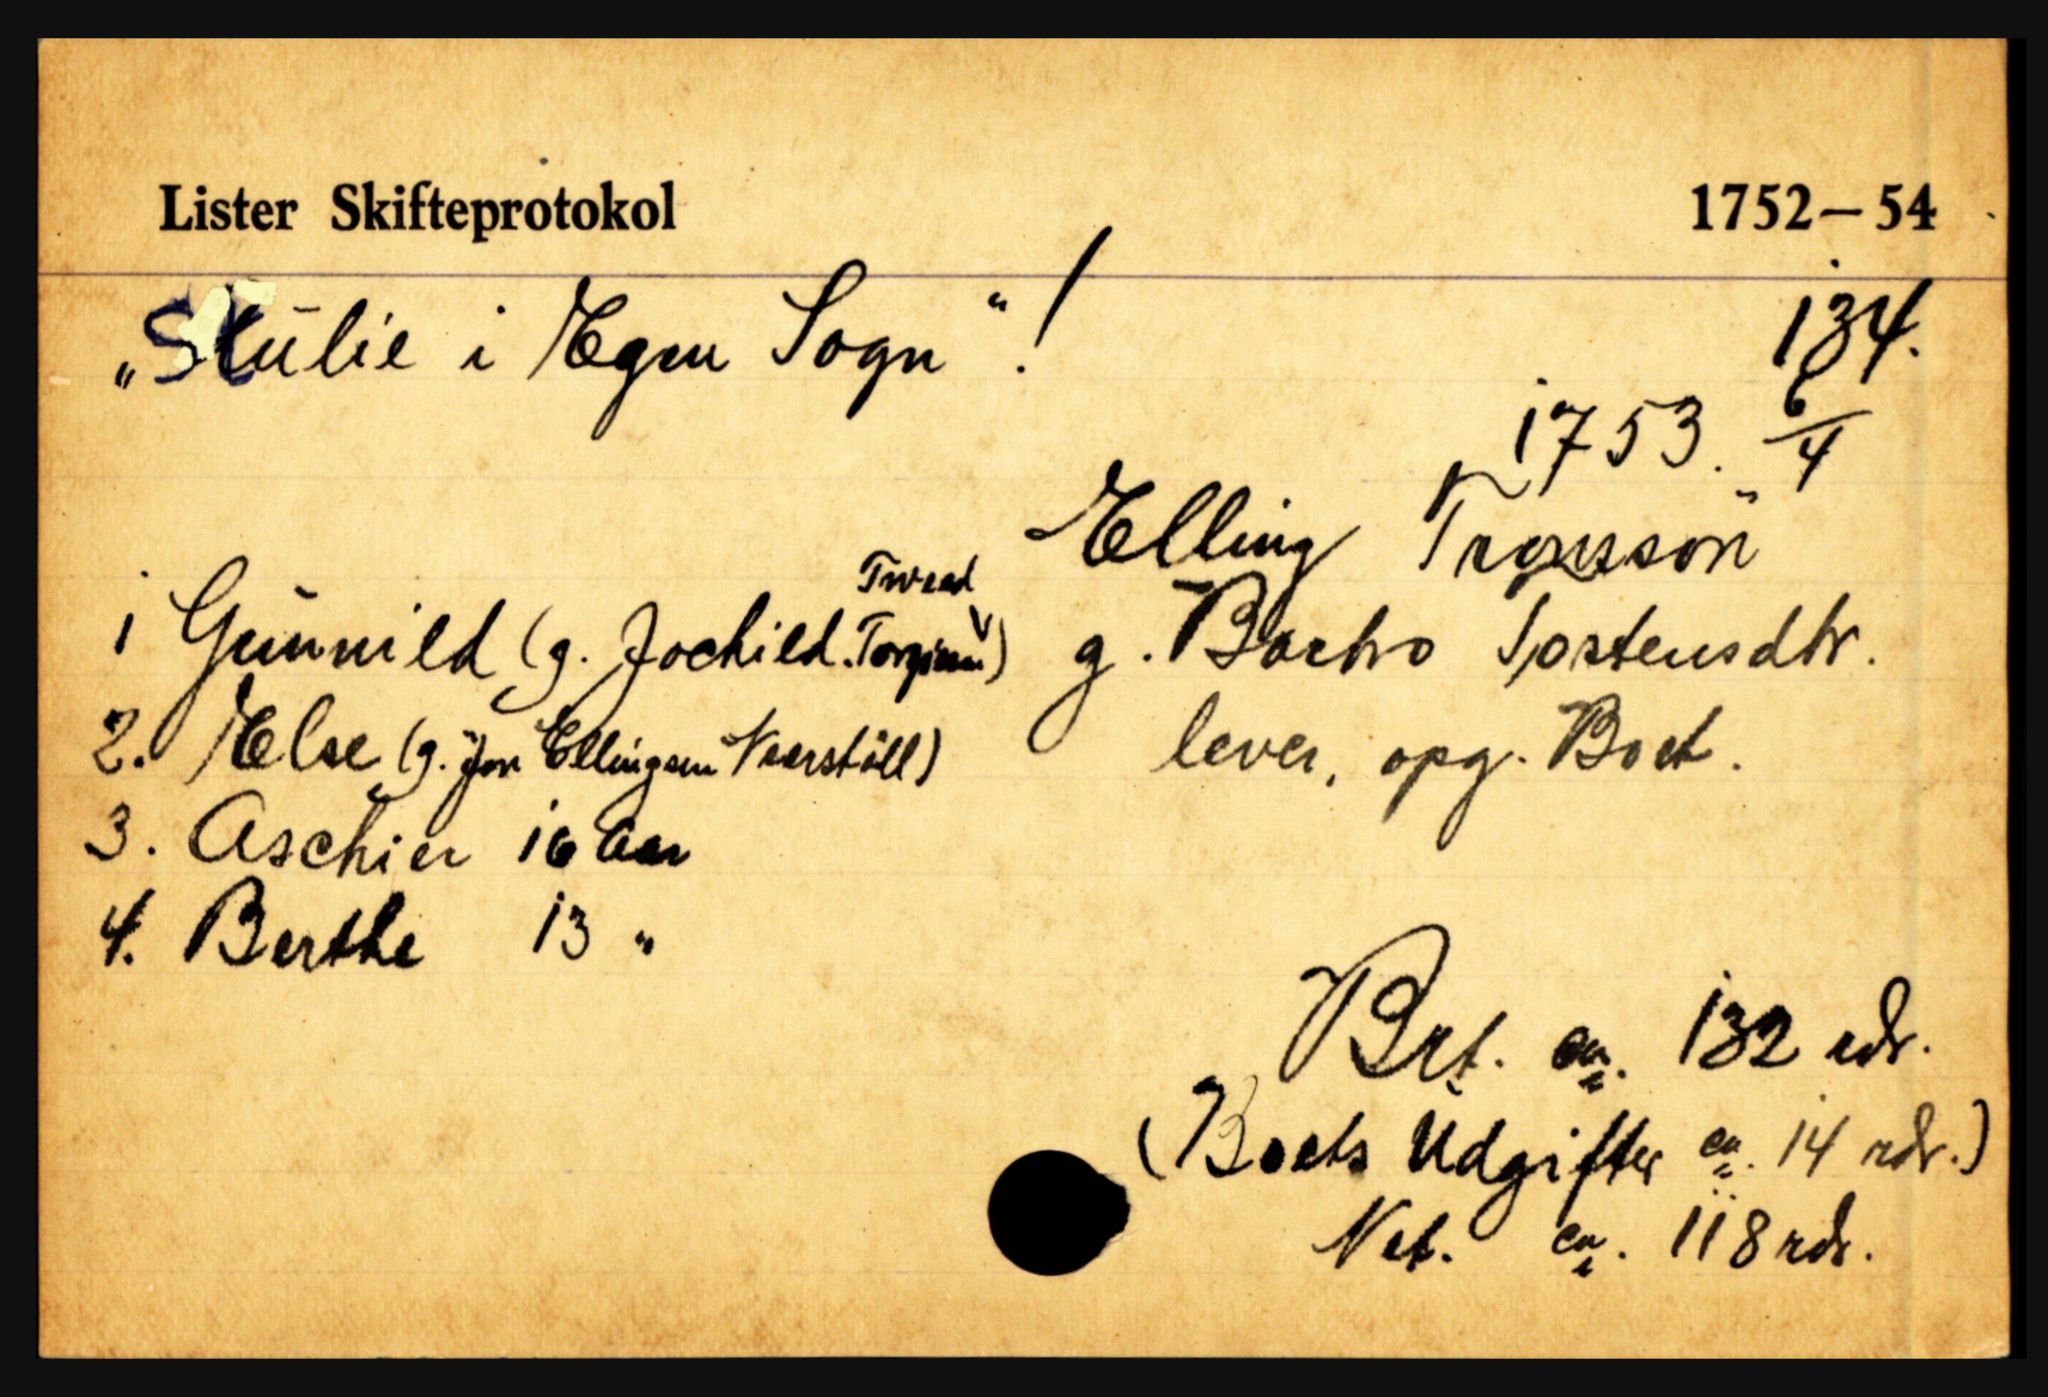 Lister Skifteprotokol 1752–54
„Skŭlie i Egen Sogn"!
134.
1753. 6/4
Elling Trgesson
g. Barbro Tostensdtr.
lever, opg. Boet.
1 Gŭnnild (g. Jochild. Torgiesen Tvead)
2. Else (g. Jon Ellingsen)
3. Aschier 16 Aar
4. Berthe 13 "
Brt. ca. 132 rdr.
(Boets Udgifter ca. 14 rdr.)
Net. ca. 118 rdr.